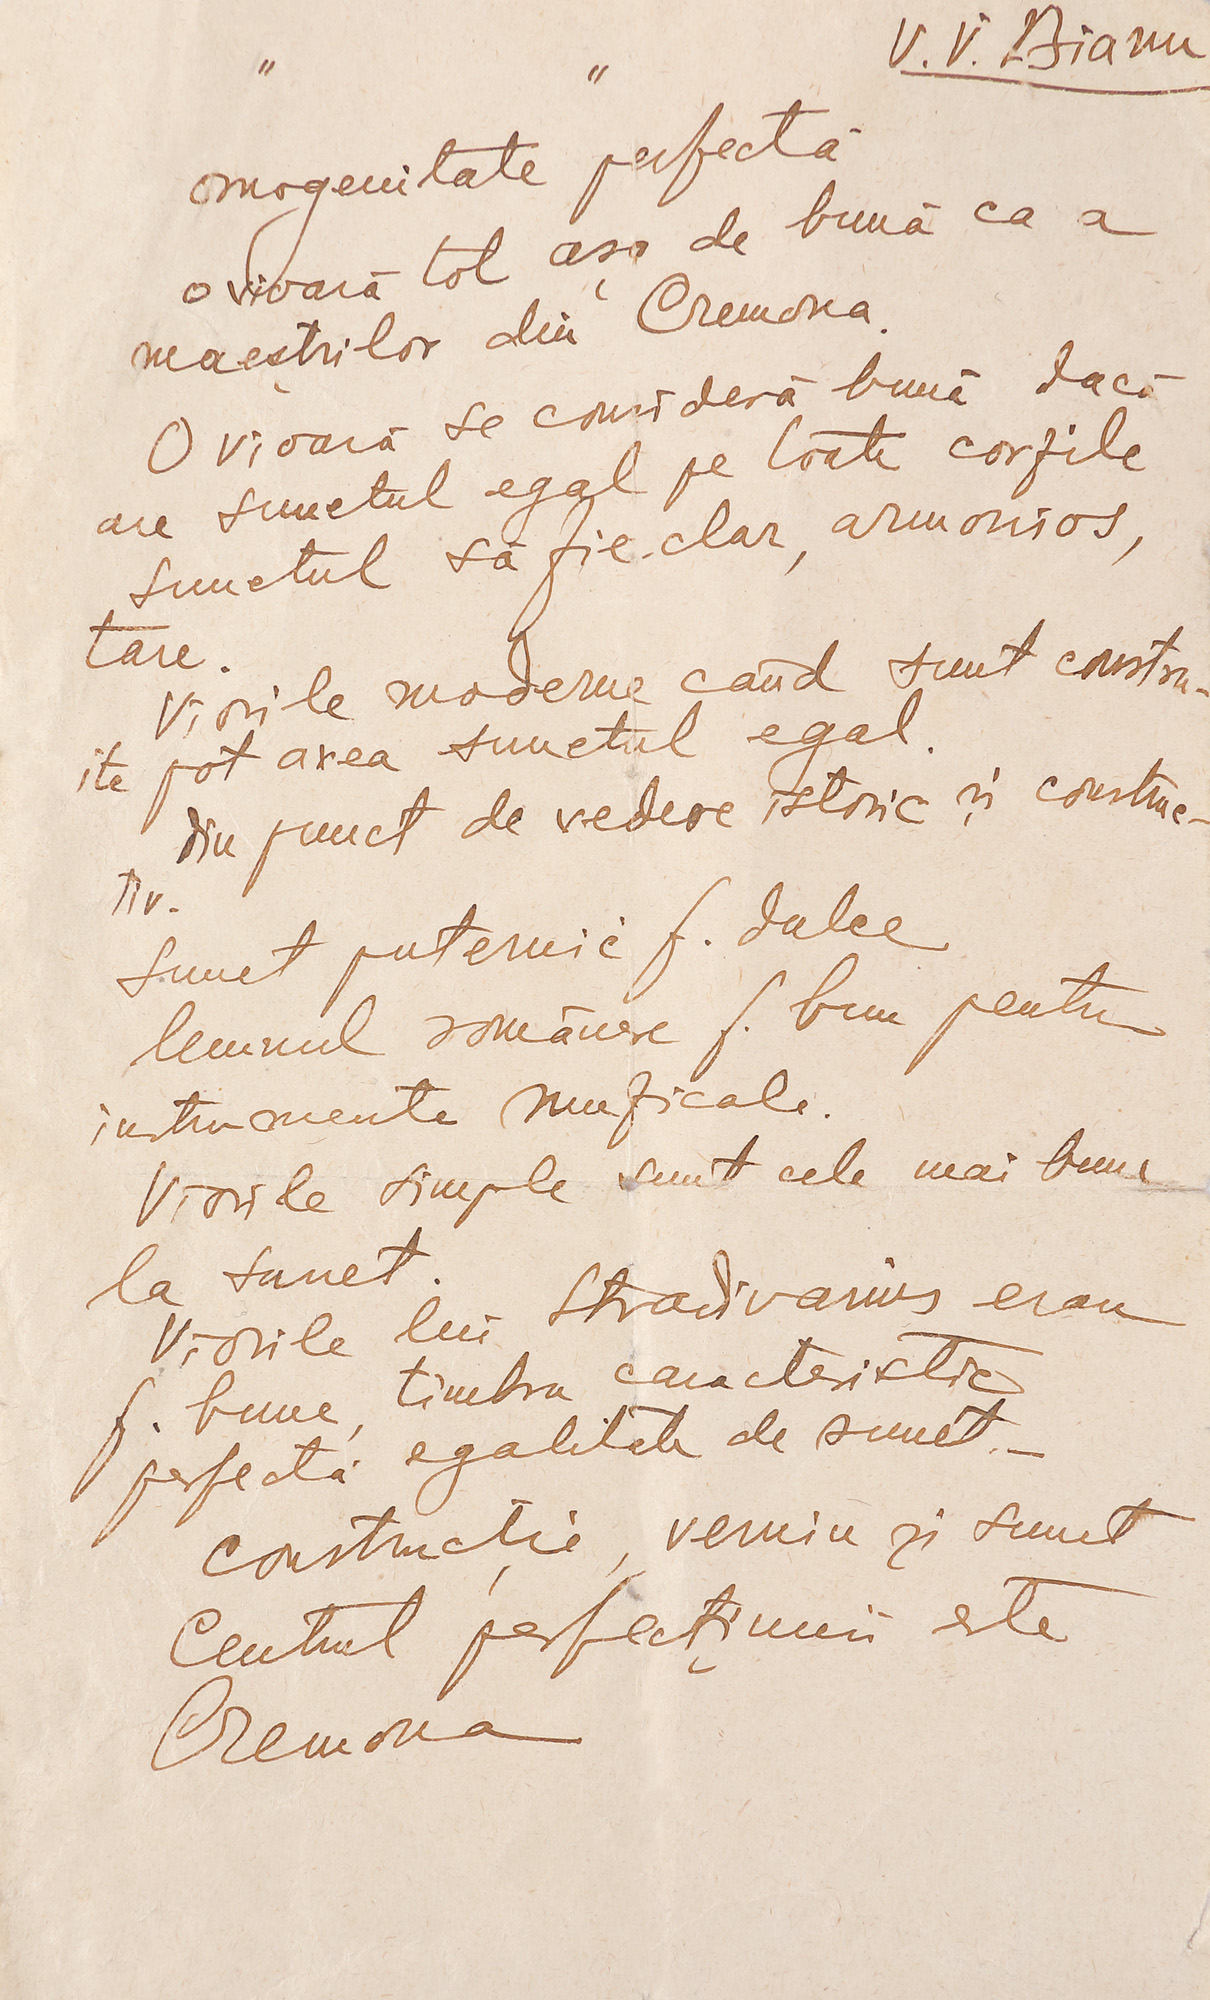 V. V. Bianu
" "
omogenitate perfectă
o vioară tot așa de bună ca a
maeștrilor din Cremona.
O vioară se consideră bună dacă
are sunetul egal pe toate corzile
sunetul să fie clar, armonios,
tare.
Viorile moderne când sunt constru-
ite pot avea sunetul egal.
din punct de vedere istoric și construc-
tiv.
Sunet puternic f. dulce
lemnul românesc f. bun pentru
instrumente muzicale.
Viorile simple sunt cele mai bune
la sunet.
Viorile lui Stradivarius erau
f. bune, timbru caracteristic
perfectă egalitate de sunet. -
construcție, verniu și sunet
Centrul perfecțiunii este
Cremona